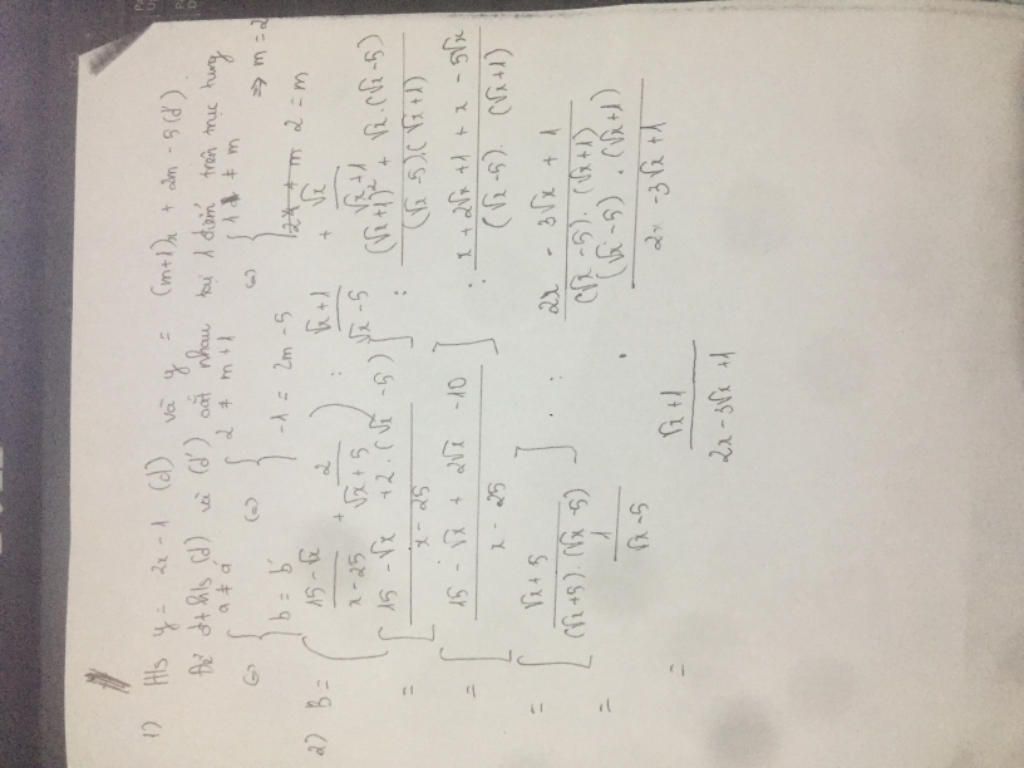 1) Hs y = 2x - 1 (d) và y = (m+1)x + 2m - 5 (d')
Để đths (d) và (d') cắt nhau tại 1 điểm trên trục tung
(=) { a ≠ a' (=) { 2 ≠ m+1 (=) { 1 ≠ m
b = b' -1 = 2m - 5 2 = m => m = 2
2) B = ( (15 - √x)/(x - 25) + 2/(√x + 5) ) : (√x + 1)/(√x - 5) + √x/(√x + 1)
= [ (15 - √x + 2.(√x - 5))/(x - 25) ] : ((√x+1)² + √x.(√x-5))/((√x-5).(√x+1))
= [ (15 - √x + 2√x - 10)/(x - 25) ] : (x + 2√x + 1 + x - 5√x)/((√x-5).(√x+1))
= [ (√x + 5)/((√x+5).(√x-5)) ] : (2x - 3√x + 1)/((√x-5).(√x+1))
= 1/(√x-5) . ((√x-5).(√x+1))/(2x - 3√x + 1)
= (√x+1)/(2x - 3√x + 1)